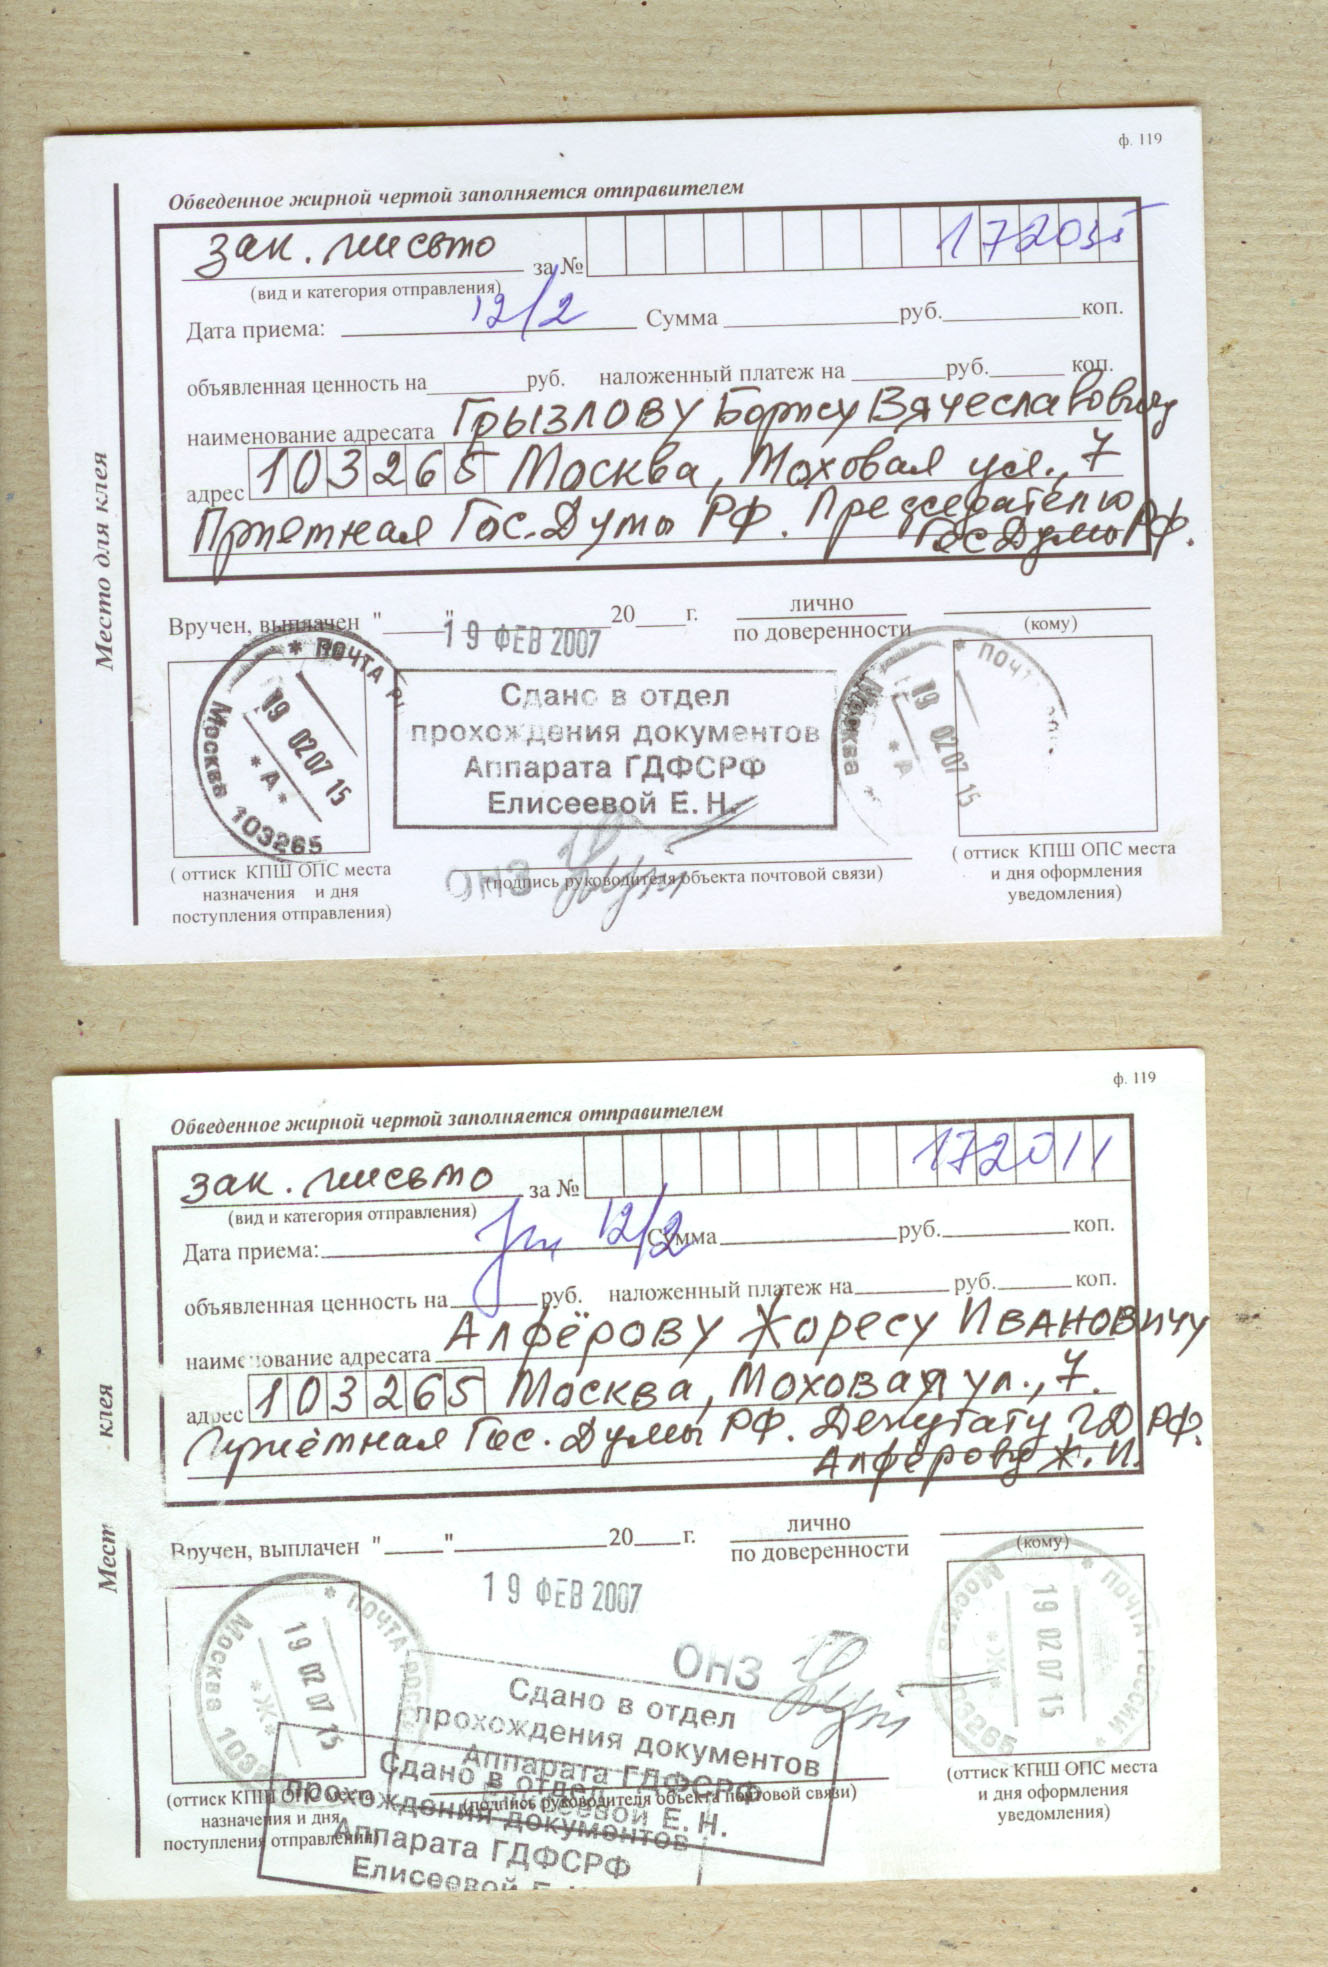 ф. 119
Обведенное жирной чертой заполняется отправителем
зак. письмо за № 172035
(вид и категория отправления)
Дата приема: 12/2 Сумма руб. коп.
объявленная ценность на руб. наложенный платеж на руб. коп.
наименование адресата Грызлову Борису Вячеславовичу
адрес 103265 Москва, Моховая ул., 7
Приемная Гос. Думы РФ. Председателю
Гос Думы РФ.
Место для клея
Вручен, выплачен " " 20 г. лично
по доверенности
(кому)
19 ФЕВ 2007
* ПОЧТА
19 02 07 15
* А *
Москва 103265
Сдано в отдел
прохождения документов
Аппарата ГДФСРФ
Елисеевой Е. Н.
* ПОЧТ
19 02 07 15
* А
Москва *
ОНЗ
(подпись руководителя объекта почтовой связи)
( оттиск КПШ ОПС места
назначения и дня
поступления отправления)
( оттиск КПШ ОПС места
и дня оформления
уведомления)
ф. 119
Обведенное жирной чертой заполняется отправителем
зак. письмо за № 172011
(вид и категория отправления)
Дата приема: 12/2 Сумма руб. коп.
объявленная ценность на руб. наложенный платеж на руб. коп.
наименование адресата Алфёрову Жоресу Ивановичу
адрес 103265 Москва, Моховая ул., 7.
Приёмная Гос. Думы РФ. Депутату ГД РФ.
Алфёрову Ж. И.
Мест клея
Вручен, выплачен " " 20 г. лично
по доверенности
(кому)
19 ФЕВ 2007
* ПОЧТА РОСС
19 02 07 15
*Ж*
Москва 103
ОНЗ
Сдано в отдел
прохождения документов
Аппарата ГДФСРФ
Елисеевой Е. Н.
Сдано в отдел
прохождения документов
Аппарата ГДФСРФ
Елисеевой Е. Н.
* ПОЧТА РОССИИ *
19 02 07 15
*Ж*
Москва 103265
(подпись руководителя объекта почтовой связи)
(оттиск КПШ ОПС места
назначения и дня
поступления отправления)
(оттиск КПШ ОПС места
и дня оформления
уведомления)